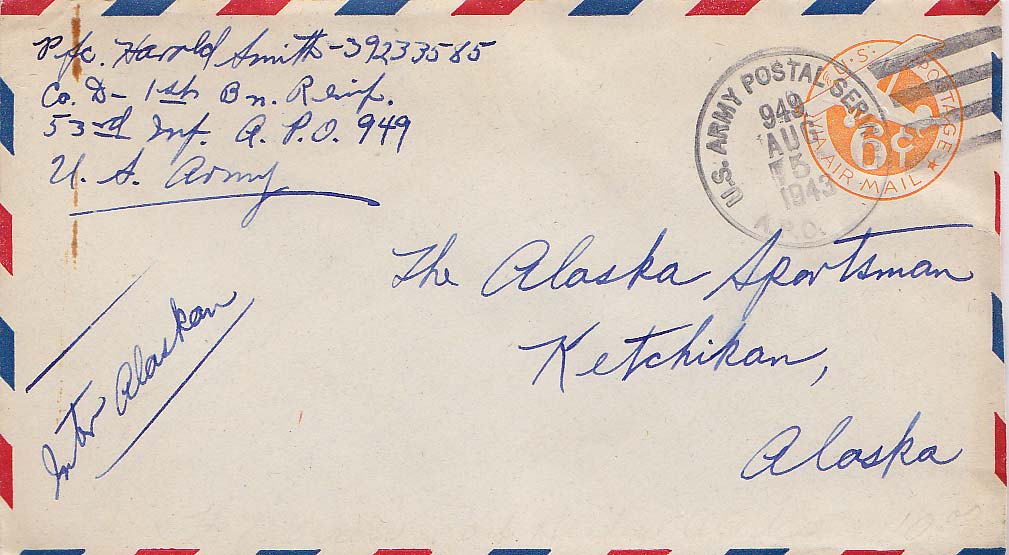 Pfc. Harold Smith - 39233585
Co. D - 1st Bn. Reinf.
53rd Inf. A.P.O. 949
U.S. Army
U.S. ARMY POSTAL SERVICE
949
AUG
15
1943
A.P.O.
U.S. POSTAGE
6¢
VIA AIR MAIL
The Alaska Sportsman
Ketchikan,
Alaska
Inter Alaskan